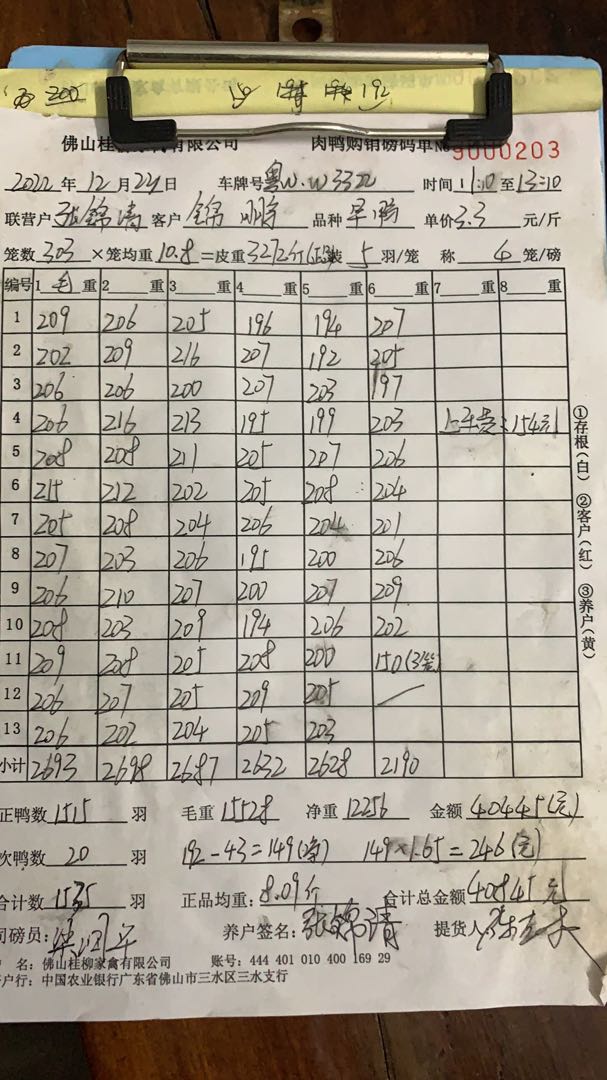 200 192
佛山桂柳家禽有限公司 肉鸭购销磅码单 № 9000203
2022年12月24日 车牌号粤W·W3322 时间11:10至13:10
联营户张锦清 客户锦鹏 品种 单价3.3元/斤
笼数303×笼均重10.8=皮重3272斤 装5羽/笼 称4笼/磅
编号 1毛重 2重 3重 4重 5重 6重 7重 8重
1 209 206 205 196 194 207
2 202 209 216 207 192 205
3 206 206 200 207 203 197
4 206 216 213 195 199 203 上车费:154元
5 208 208 211 205 207 206
6 215 212 202 205 208 204
7 205 208 204 206 204 201
8 207 203 206 195 200 206
9 206 210 207 200 207 209
10 208 203 209 194 206 202
11 209 208 205 208 200 150(3笼)
12 206 207 205 209 205 —
13 206 202 204 205 203
小计 2693 2698 2687 2632 2628 2190
正鸭数1515羽 毛重15528 净重12256 金额40445(元)
次鸭数20羽 192-43=149(斤) 149×1.65=246(元)
合计数1535羽 正品均重:8.09斤 合计总金额40845元
司磅员: 养户签名:张锦清 提货人
户 名:佛山桂柳家禽有限公司 账号:444 401 010 400 169 29
开户行:中国农业银行广东省佛山市三水区三水支行
①存根(白) ②客户(红) ③养户(黄)